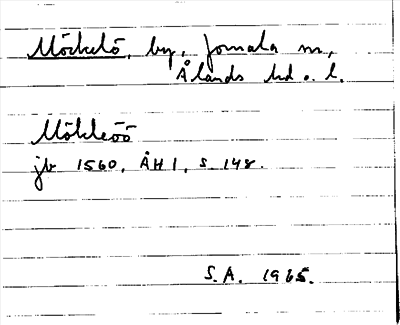 Möckelö, by, Jomala sn,
Ålands hd o. l.
Möckleöö
jb 1560, ÅH 1, s. 148.
S.A. 1965.